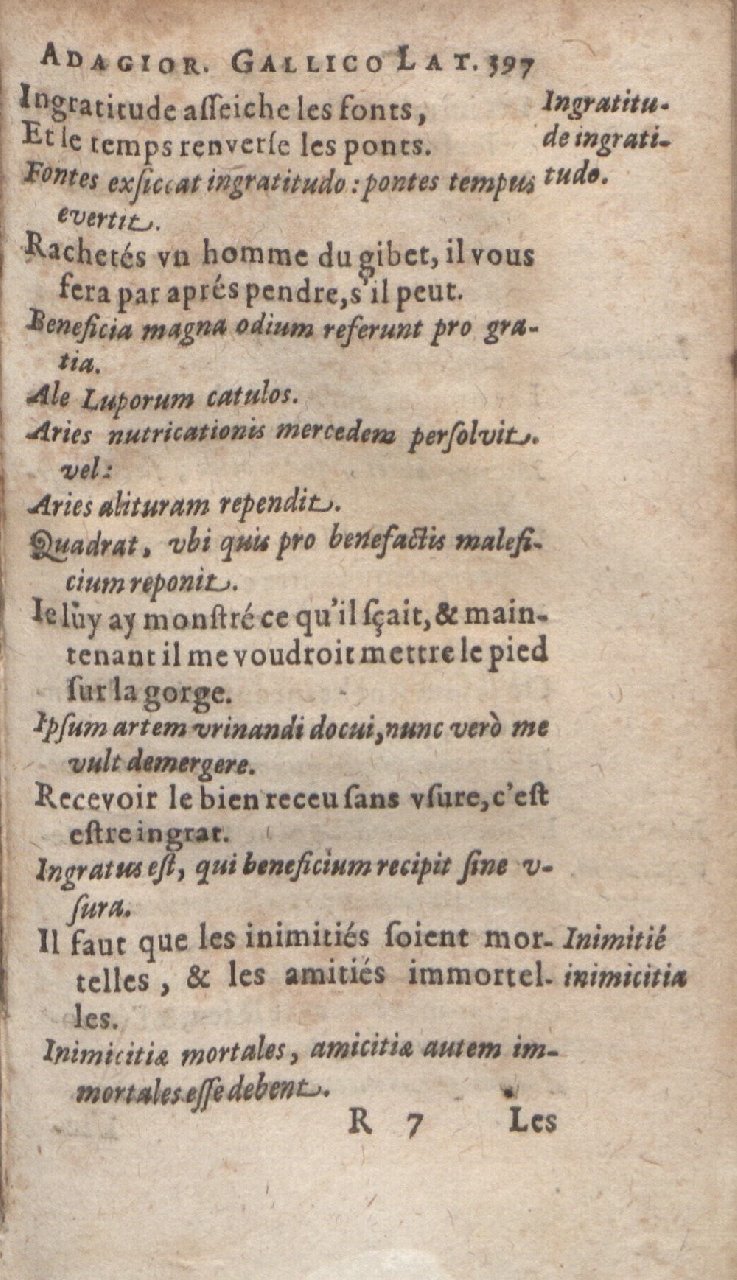 ADAGIOR. GALLICO LAT. 397
Ingratitude asſeiche les fonts,
Et le temps renverſe les ponts.
Fontes exſiccat ingratitudo : pontes tempus
evertit.
Rachetés vn homme du gibet, il vous
fera par aprés pendre, s'il peut.
Beneficia magna odium referunt pro gra-
tia.
Ale Luporum catulos.
Aries nutricationis mercedem perſolvit.
vel:
Aries alituram rependit.
Quadrat, vbi quis pro benefactis malefi-
cium reponit.
Ie lùy ay monſtré ce qu'il ſçait, & main-
tenant il me voudroit mettre le pied
ſur la gorge.
Ipſum artem vrinandi docui, nunc verò me
vult demergere.
Recevoir le bien receu ſans vſure, c'eſt
eſtre ingrat.
Ingratus eſt, qui beneficium recipit ſine v-
ſura.
Il faut que les inimitiés ſoient mor-
telles, & les amitiés immortel-
les.
Inimicitiæ mortales, amicitiæ autem im-
mortales eſſe debent.
R 7 Les
Ingratitu-
de ingrati-
tudo.
Inimitié
inimicitia